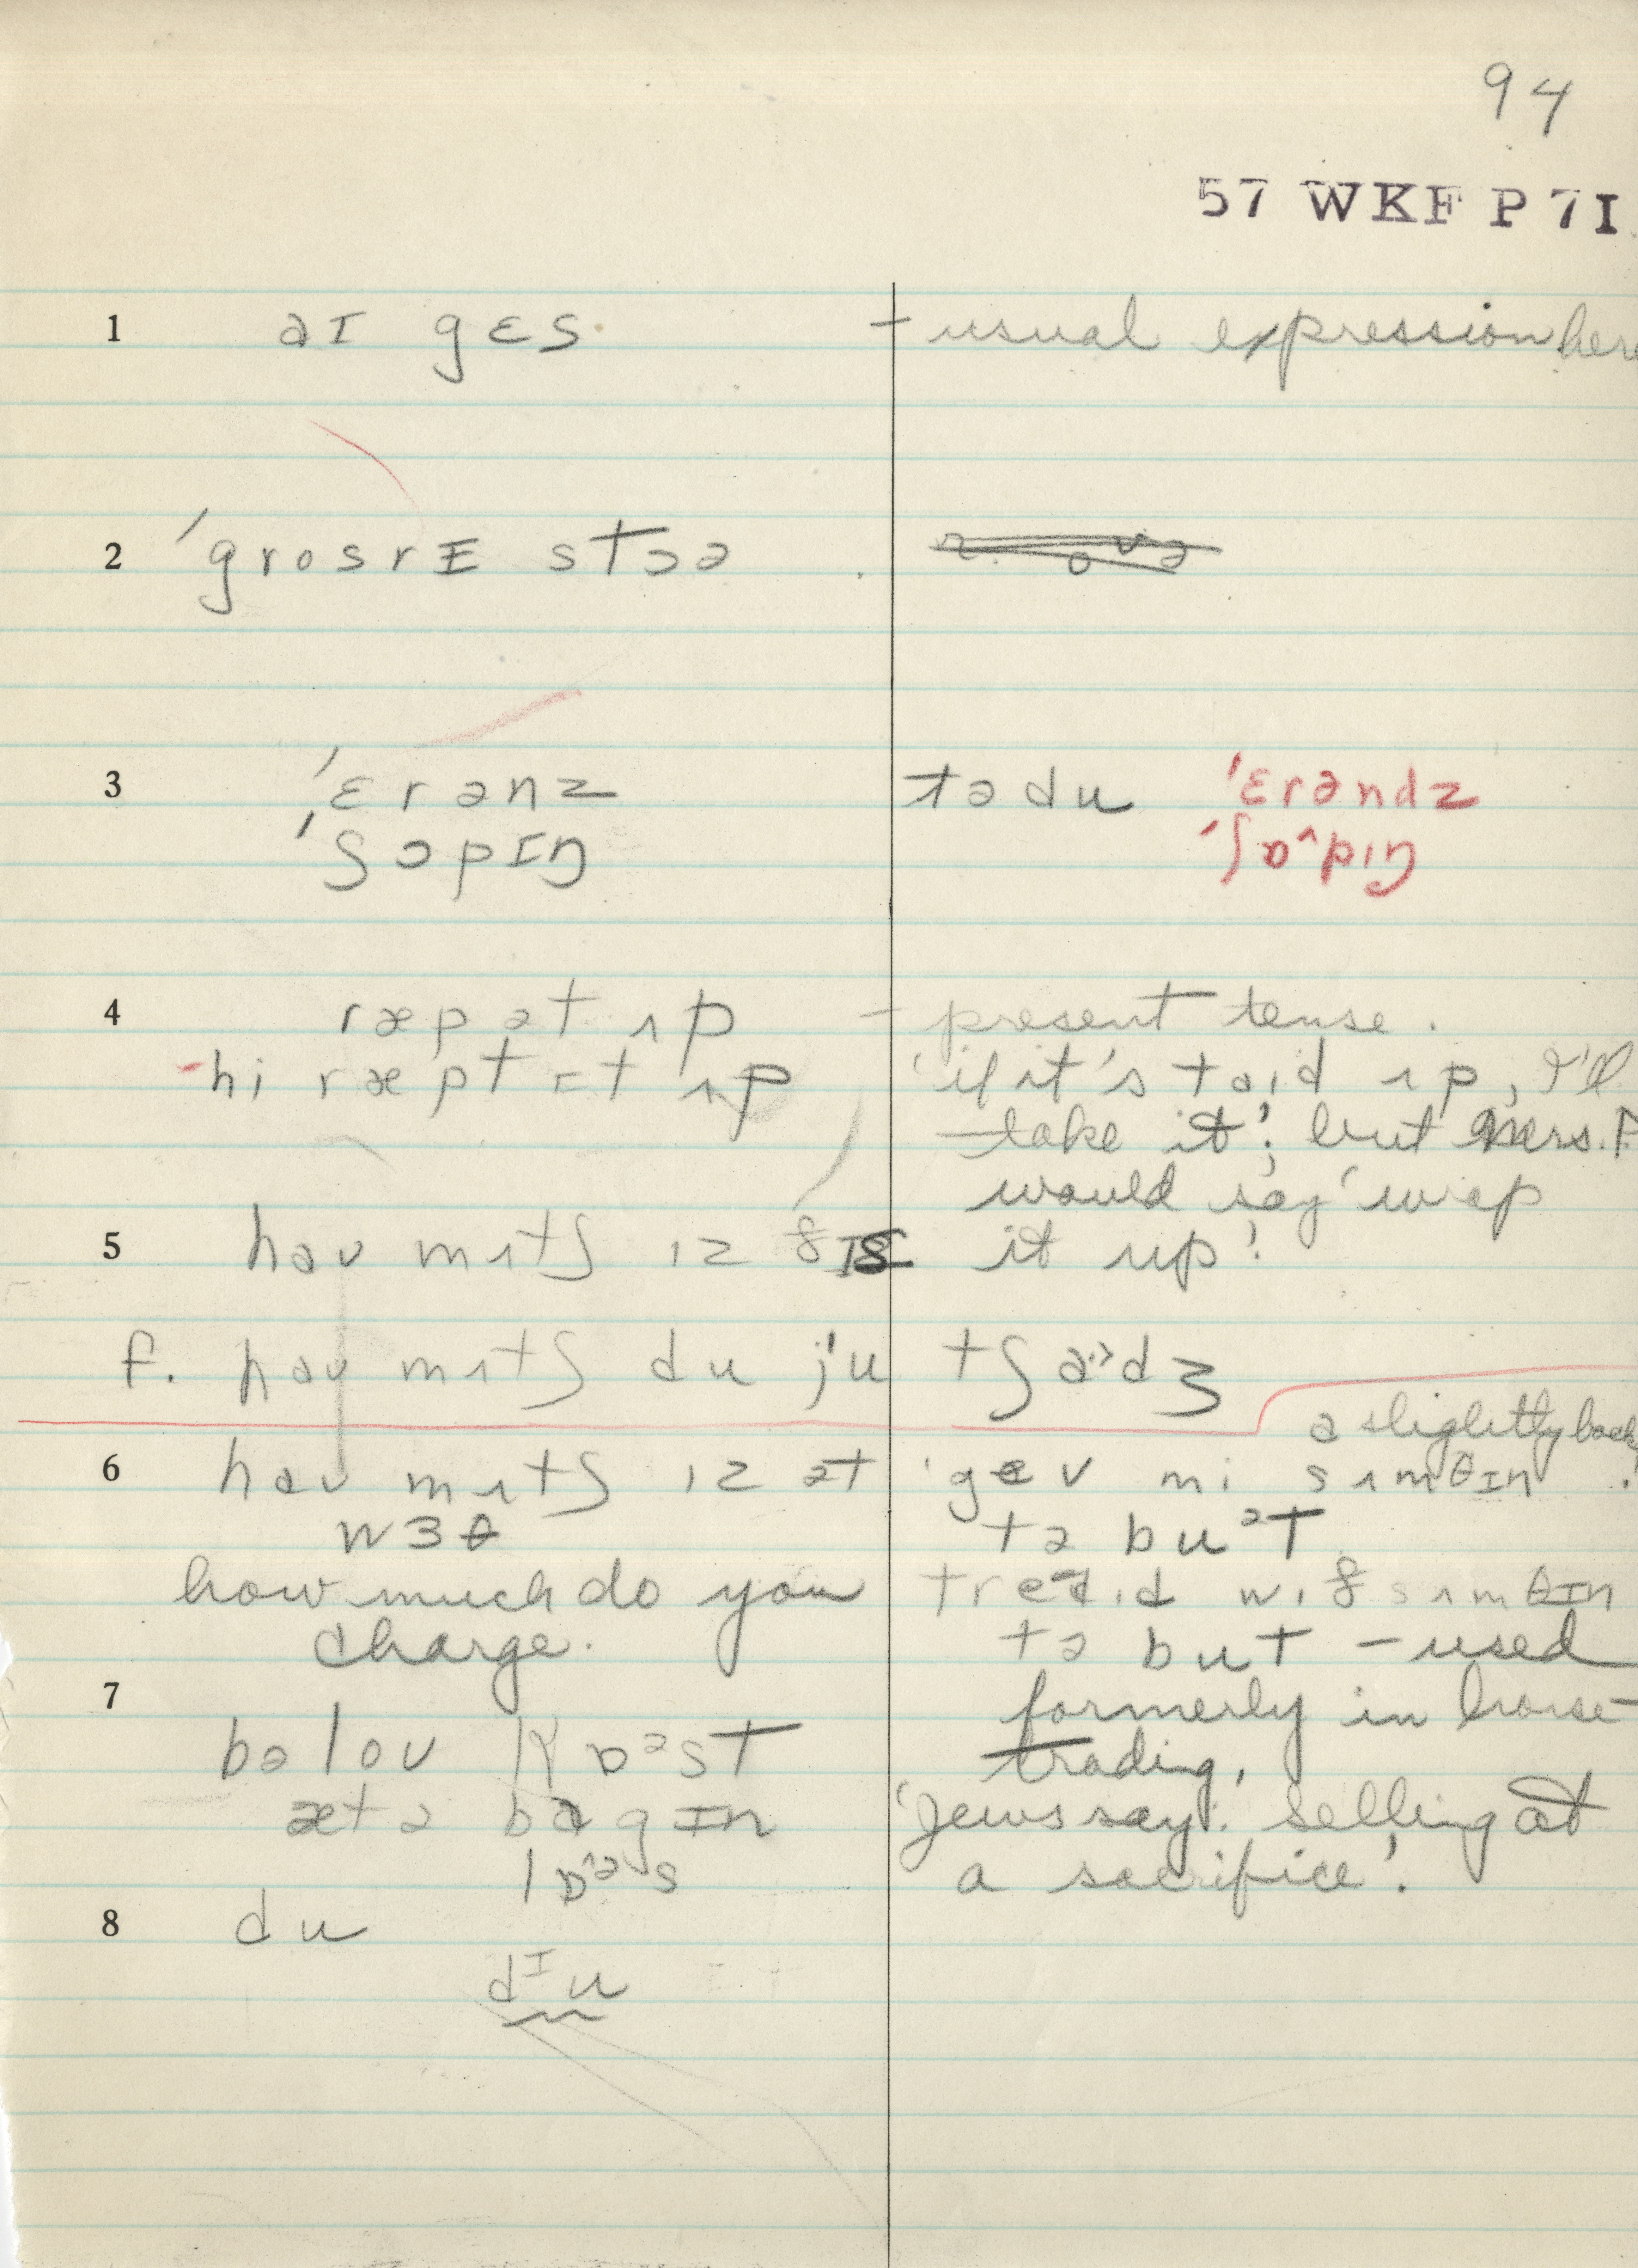 94
57 WKF P 7I
1 aɪ gɛs - usual expression here
2 ˈgrosrɪ stɔə
3 ˈɛrənz tə du ˈɛrəndz
ˈʃɔpɪŋ ˈʃɒ^pɪŋ
4 ræp ət ʌp - present tense.
- hi ræpt ɪt ʌp 'if it's taɪd ʌp, I'll
take it'; but Mrs. F.
would say 'wrap
5 haʊ mʌtʃ ɪz ðɪs it up'.
F. haʊ mʌtʃ du ju tʃa˙>dʒ
a slightly back
6 haʊ mʌtʃ ɪz ət 'gev mi sʌmθɪn
wɜθ tə buᵊt
how much do you tredɪd wɪð sʌmθɪn
charge. tə but - used
7 formerly in horse-
bəloʊ kɒᵊst trading,
æt ə bagɪn 'Jews say: selling at
lɒ^ᵊs a sacrifice'.
8 du
dᶦu